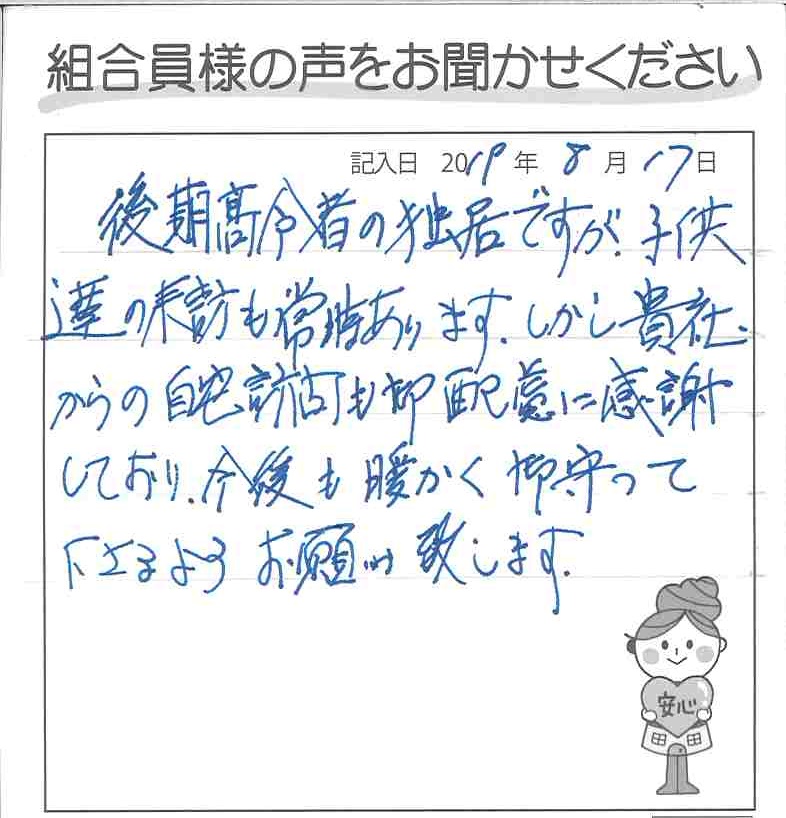 組合員様の声をお聞かせください
記入日 2019年 8月 17日
後期高令者の独居ですが、子供
達の来訪も常時あります。しかし貴社
からの自宅訪問も御配慮に感謝
しており、今後も暖かく御守って
下さるよう お願い致します。
安心